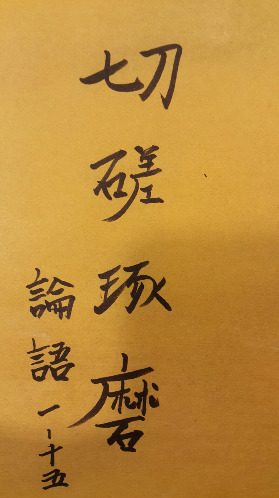 切磋琢磨
論語 一-十五